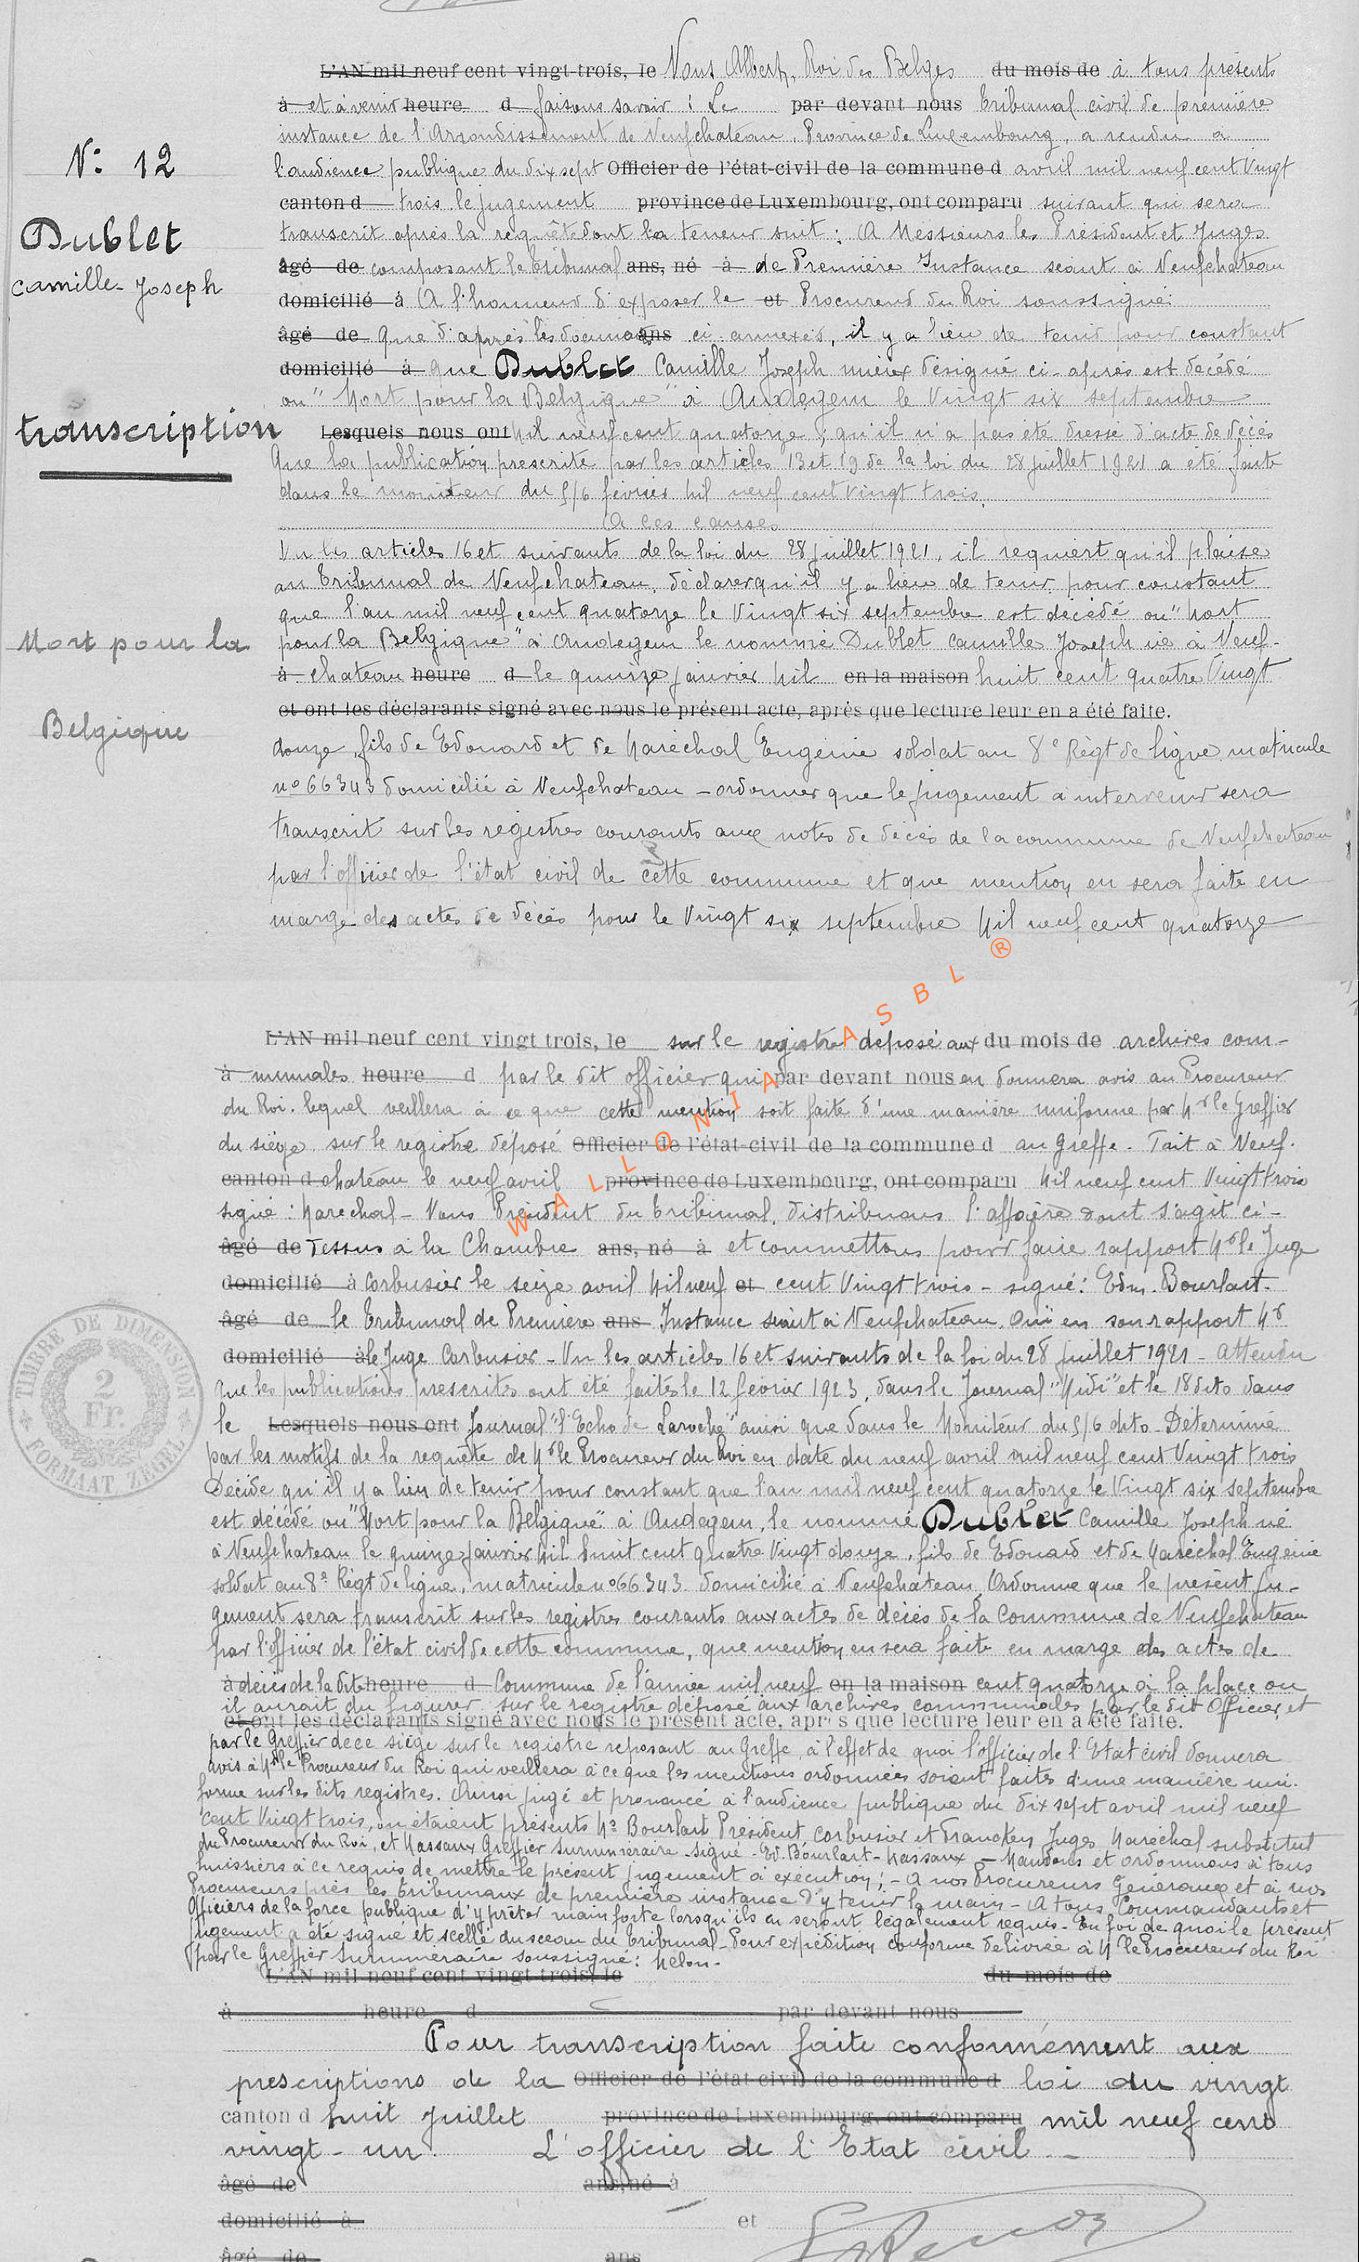 N: 12
Dublet
Camille-Joseph
transcription
Mort pour la
Belgique
L'AN mil neuf cent vingt-trois, le Nous Albert, Roi des Belges du mois de à tous présents
à et à venir heure d faisons savoir : Le par devant nous tribunal civil de première
instance de l'Arrondissement de Neufchateau, Province de Luxembourg, a rendu a
l'audience publique du dix sept Officier de l'état-civil de la commune d avril mil neuf cent Vingt
canton d trois le jugement province de Luxembourg, ont comparu suivant qui sera
transcrit après la requête dont la teneur suit : A Messieurs les Président et Juges
âgé de composant le tribunal ans, né à de Première Instance séant à Neufchateau
domicilié à A l'honneur d'exposer le et Procureur du Roi soussigné
âgé de Que d'après les documents ans ci annexés, il y a lieu de tenir pour constant
domicilié à que Dublet Camille Joseph mieux désigné ci-après est décédé
ou "Mort pour la Belgique" à Audegem le Vingt six septembre
Lesquels nous ont Mil neuf cent quatorze ; qu'il n'a pas été dressé d'acte de décès
Que la publication prescrite par les articles 13 et 19 de la loi du 28 juillet 1921 a été faite
dans le moniteur du 5/6 février Mil neuf cent Vingt trois.
A ces causes
Vu les articles 16 et suivants de la loi du 28 juillet 1921, il requiert qu'il plaise
au tribunal de Neufchateau, déclarer qu'il y a lieu de tenir pour constant
que l'an mil neuf cent quatorze le Vingt six septembre est décédé ou "Mort
pour la Belgique" à Audegem le nommé Dublet Camille Joseph né à Neuf-
à chateau heure d le quinze janvier Mil en la maison huit cent quatre Vingt
et ont les déclarants signé avec nous le présent acte, après que lecture leur en a été faite.
douze, fils de Edouard et de Maréchal Eugenie soldat au 8e Régt de ligne matricule
no 66343 domicilié à Neufchateau - ordonner que le jugement à intervenir sera
transcrit sur les registres courants aux notes de décès de la commune de Neufchateau
par l'officier de l'état civil de cette commune et que mention en sera faite en
marge des actes de décès pour le Vingt six septembre Mil neuf cent quatorze
WALLONIA ASBL ®
L'AN mil neuf cent vingt trois, le sur le registre déposé aux du mois de archives com-
à munales heure d par le dit officier qui par devant nous en donnera avis au Procureur
du Roi. lequel veillera à ce que cette mention soit faite d'une manière uniforme par Mr le Greffier
du siège sur le registre déposé Officier de l'état-civil de la commune d au greffe. Fait à Neuf.
canton d chateau le neuf avril province de Luxembourg, ont comparu Mil neuf cent Vingt trois
signé : Maréchal - Nous Président du tribunal, distribuons l'affaire dont s'agit ci-
âgé de Dessus à la Chambre ans, né à et commettons pour faire rapport Mr le Juge
domicilié à Corbusier le seize avril Mil neuf et cent Vingt trois - signé : Edm. Bourlart.
âgé de le tribunal de Première ans Instance séant à Neufchateau. Ouï en son rapport Mr
domicilié à le Juge Corbusier - Vu les articles 16 et suivants de la loi du 28 juillet 1921 - Attendu
que les publications prescrites ont été faites le 12 février 1923, dans le Journal "Midi" et le 18 dito dans
le Lesquels nous ont Journal "l'Echo de Laroche" ainsi que dans le Moniteur du 5/6 dito. Déterminé
par les motifs de la requête de Mr le Procureur du Roi en date du neuf avril mil neuf cent Vingt trois
Décide qu'il y a lieu de tenir pour constant que l'an mil neuf cent quatorze le Vingt six septembre
est décédé ou "Mort pour la Belgique" à Audegem, le nommé Dublet Camille Joseph né
à Neufchateau le quinze janvier Mil huit cent quatre Vingt douze, fils de Edouard et de Maréchal Eugénie
soldat au 8e Régt de ligne, matricule no 66343 domicilié à Neufchateau, Ordonne que le présent ju-
gement sera transcrit sur les registres courants aux actes de décès de la Commune de Neufchateau
par l'officier de l'état civil de cette commune, que mention en sera faite en marge des actes de
à décès de la dite heure d Commune de l'année mil neuf en la maison cent quatorze à la place ou
il aurait du figurer sur le registre déposé aux archives communales par le dit Officier, et
et ont les déclarants signé avec nous le présent acte, après que lecture leur en a été faite.
par le Greffier de ce siège sur le registre reposant au Greffe, à l'effet de quoi l'officier de l'Etat civil donnera
avis à Mr le Procureur du Roi qui veillera à ce que les mentions ordonnées soient faites d'une manière uni-
forme sur les dits registres. Ainsi jugé et prononcé à l'audience publique du dix sept avril mil neuf
cent Vingt trois, où étaient présents Mrs Bourlart Président, Corbusier et Franckey Juges Maréchal substitut
du Procureur du Roi, et Massaux Greffier surnuméraire signé - Ed. Bourlart - Massaux - Mandons et ordonnons à tous
huissiers à ce requis de mettre le présent jugement à exécution ; - A nos Procureurs Généraux et à nos
Procureurs près les tribunaux de première instance d'y tenir la main - A tous Commandants et
Officiers de la force publique d'y prêter main forte lorsqu'ils en seront légalement requis. En foi de quoi le présent
jugement a été signé et scellé du sceau du tribunal - Pour expédition conforme délivrée à Mr le Procureur du Roi
par le Greffier surnuméraire soussigné :
L'AN mil neuf cent vingt trois, le du mois de
à heure d par devant nous
Pour transcription faite conformément aux
prescriptions de la Officier de l'état civil de la commune d loi du vingt
canton d huit juillet province de Luxembourg, ont comparu mil neuf cent
vingt-un. L'officier de l'Etat civil
âgé de ans, né à
domicilié à et
âgé de ans
TIMBRE DE DIMENSION
2
Fr.
FORMAAT ZEGEL